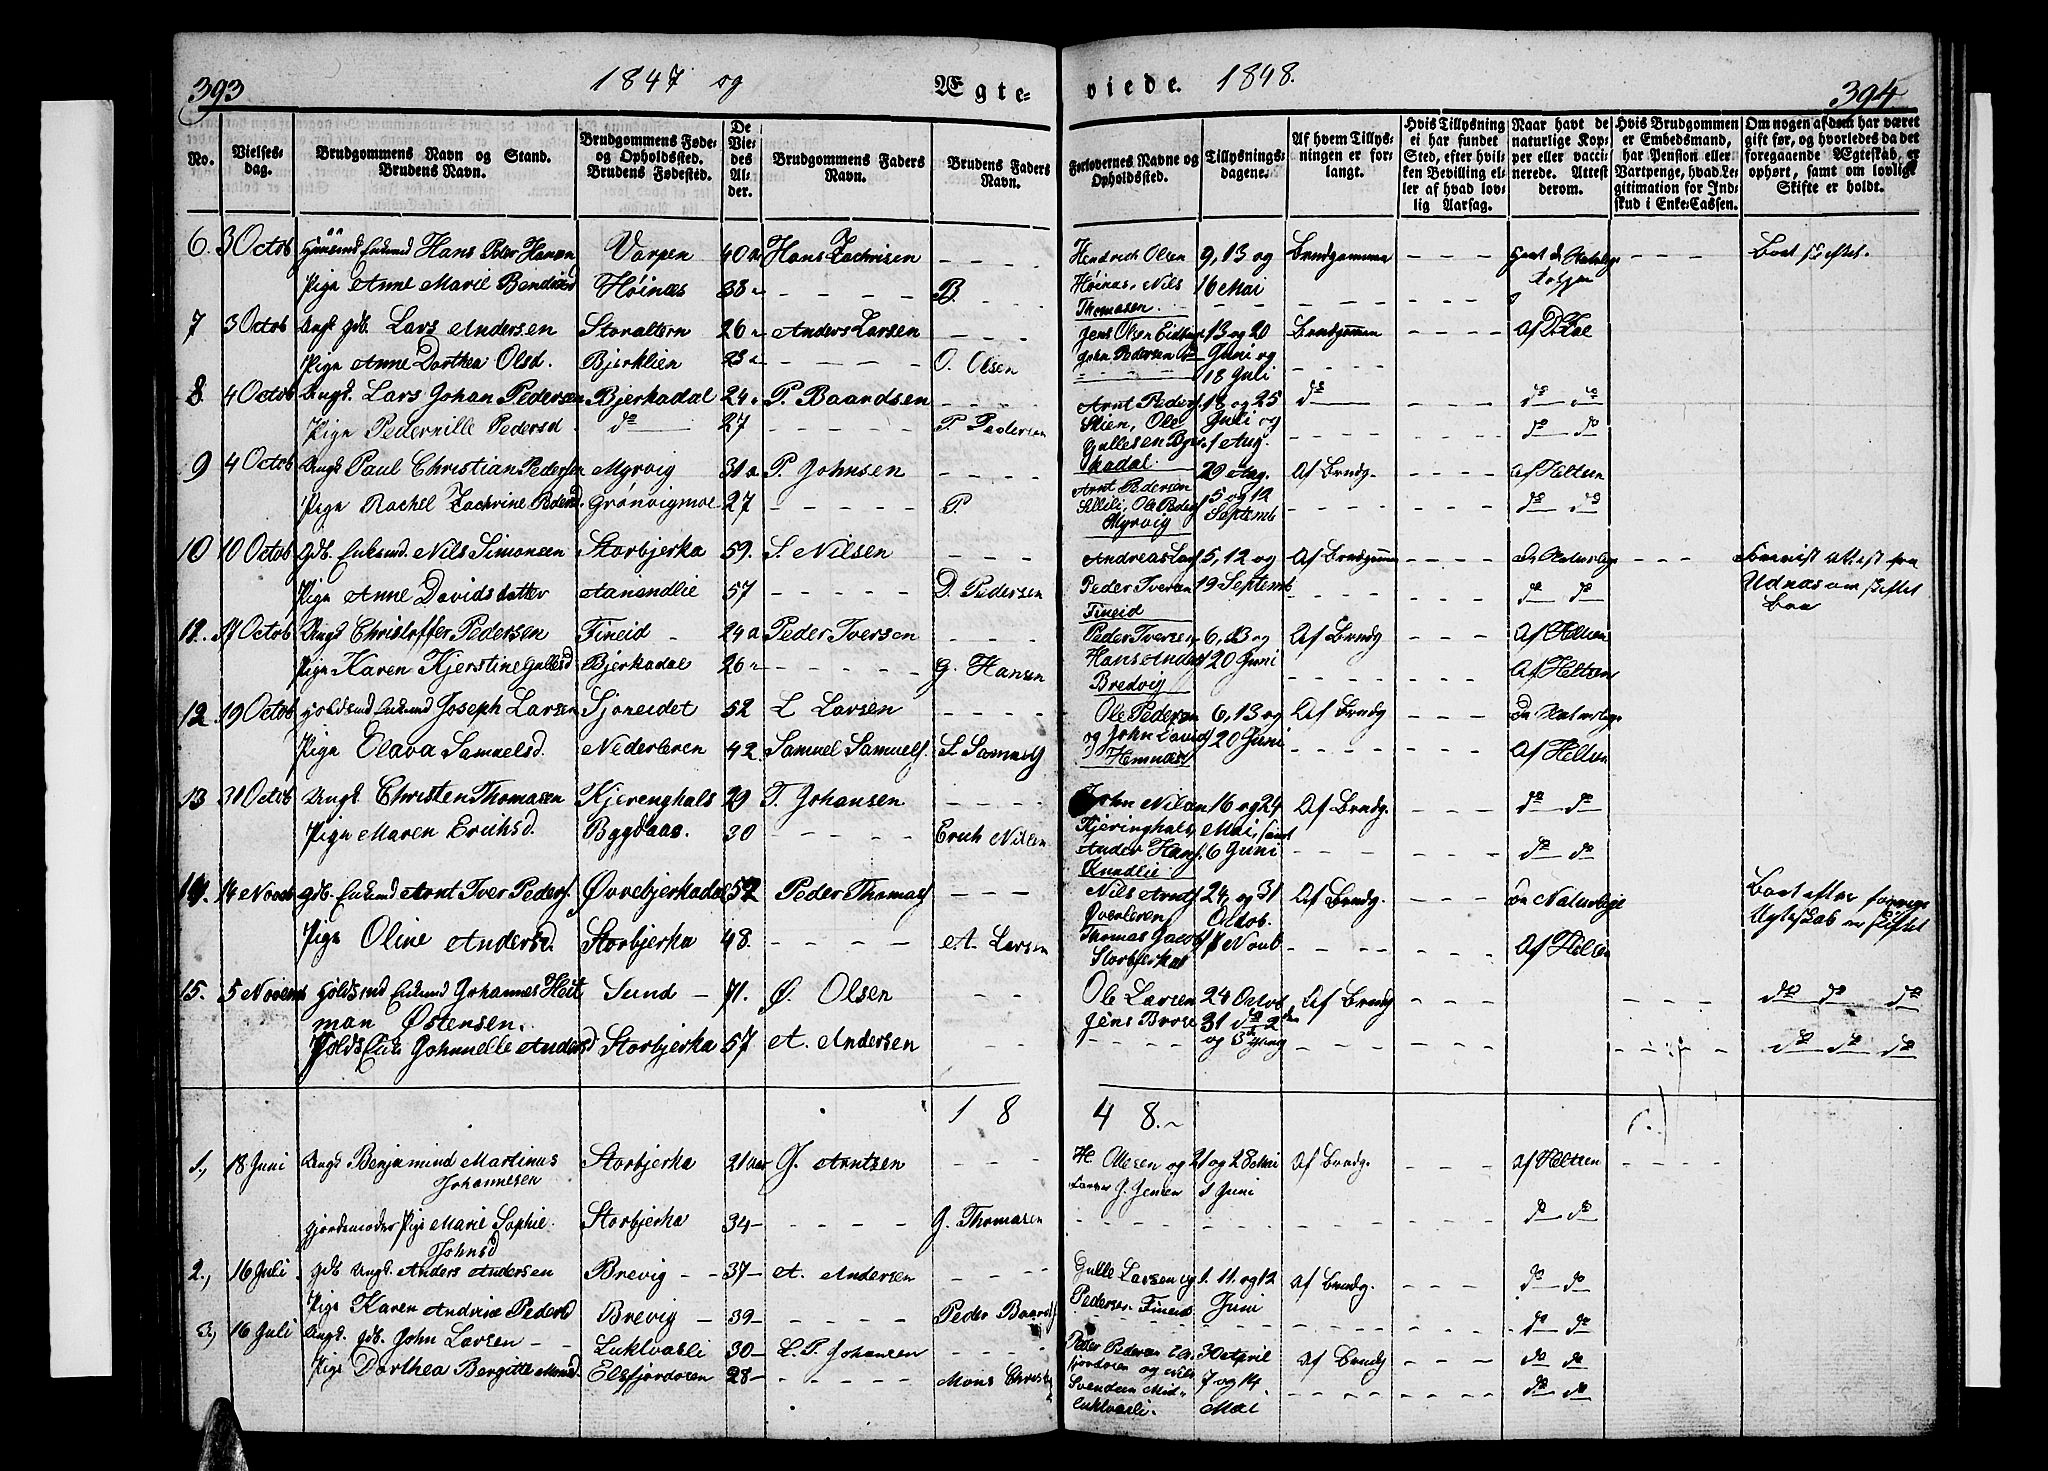 393
1847 og
Ægte=
viede. 1848.
394
No.
Vielses-dag.
Brudgommens Navn og Stand. Brudens Navn.
Brudgommens Føde- og Opholdssted. Brudens Fødested.
De Viedes Alder.
Brudgommens Faders Navn.
Brudens Faders Navn.
Forlovernes Navne og Opholdssted.
Tillysnings-dagene.
Af hvem Tillysningen er forlangt.
Hvis Tillysning ei har fundet Sted, efter hvilken Bevilling eller af hvad lovlig Aarsag.
Naar havt de naturlige Kopper eller vaccinerede. Attest derom.
Hvis Brudgommen er Embedsmand, har Pension eller Vartpenge, hvad Legitimation for Indskud i Enke-Cassen.
Om nogen af dem har været gift før, og hvorledes da det foregaaende Ægteskab er ophørt, samt om lovligt Skifte er holdt.
6. 3 Octob Enkemd Hans Peder Hansen Varpen 40 Hans Zachrisen Hendrich Olsen 9, 13 og Brudgommen
Pige Anne Marie Høinæs 38 B Høinæs, Nils 16 Mai
Thomasen
7 3 Octob Ungk gdb. Lars Andersen Storaltern 26 Anders Larsen Jens Olsen 13 og 20 Brudgommen
Pige Anne Dorthea Olsd. Bjerklien 23 O. Olsen John Pedersen Juni og
18 Juli
8 4 Octob Ungk. Lars Johan Pedersen Bjerkadal 24 P. Baardsen Arnt Peders 18 og 25 do do do
Pige Pedernille Pedersd do 27 P. Pedersen Skien, Ole Juli og do do
Gullesen 1 Aug.
9 4 Octob Ungk Paul Christian Pedersen Myrvig 31 P. Johnsen 29 Aug. Af Brudg. Af Heltzen
Pige Rachel Zachrine Grønvigmoe 27 P Arnt Pedersen 5 og 12 do do
Ole Peders Septemb
Myrvig
10 10 Octob Gdb. Enkemd. Nils Simonsen Storbjerka 59. S. Nilsen Andreas Lars 5, 12 og Af Brudgommen de Naturlige
Pige Anne Davidsdatter 57 D. Pedersen Peder Iversen 19 Septemb do do Udnæs om skiftet
Fineid
11. 17 Octob Ungk Christoffer Pedersen Fineid 24 Peder Iversen Peder Iversen 6, 13 og Af Brudg Af Heltzen
Pige Karen Kjerstine Gullesd Bjerkadal 26 G. Hansen Hans Anders 20 Juni Af Heltzen
Bredvig
12 19 Octob Enkemd Joseph Larsen Sjoneidet 52 L Larsen Ole Pedersen 6, 13 og Af Brudg de Naturlige
Pige Elava Samuelsd. Nederleren 42 Samuel Samuels. S. Samuels og John 20 Juni Af Heltzen
Hemnæs
13 31 Octob Ungk. Christen Thomasen Kjerenghals 29 T. Johansen John Nilsen 16 og 24 Af Brudg. do do
Pige Maren Erichsd. Bygdaas. 30 Erich Nilsen Kjeringhals, Mai, samt do do
Ander Hans. 6 Juni
14. 14 Novb Gdb. Enkemd Arnt Iver Peders. Øvrebjerkadal 52 Peder Thomas Nils Arnts 24, og 31 Af Brudg. de Naturlige
Pige Oline Andersd. Storbjerka 48. A. Larsen Øverleren Oktob. Af Heltzen
Thomas Jacob 7 Novb.
Storbjerka
15. 5 Novemb Enkemd Johannes Heit Sund 71. Ø. Olsen Ole Larsen 24 Octob Af Brudg do do do
man Østensen. Jens Brose 31 do 2den
Enke Johnnelle Andersd Storbjerka 57 A. Andersen og 3die Gang do do do
1 8 4 8.
1., 18 Juni Ungk Benjamind Martinus Storbjerka 21 J. Arntzen H. Ollesen og 21 og 28 Mai Af Brudg. Af Heltzen
Johannesen J. Jensen Juni
Gjordemoder Pige Marie Sophie Storbjerka 34 J. Thomasen do do
Johnsd
2., 16 Juli Gdb Ungk. Anders Andersen Brevig 37 A. Andersen Gulle Larsen og 1. 11. og 12 Af Brudg. do do
Pige Karen Andrine Pedersd Brevig 39 Peder Baards Pedersen Fineid Juni do do
3., 16 Juli Ungk. gdb. John Larsen Luktvasli 30 L. P. Johansen Peder Pedersen 30 April Af Brudg do do
Pige Dorthea Bergitte Monsd. Elsfjordøren 28 Mons og Nils 7 og 14 do do
Svendsen Mid= Mai
luktvasli.